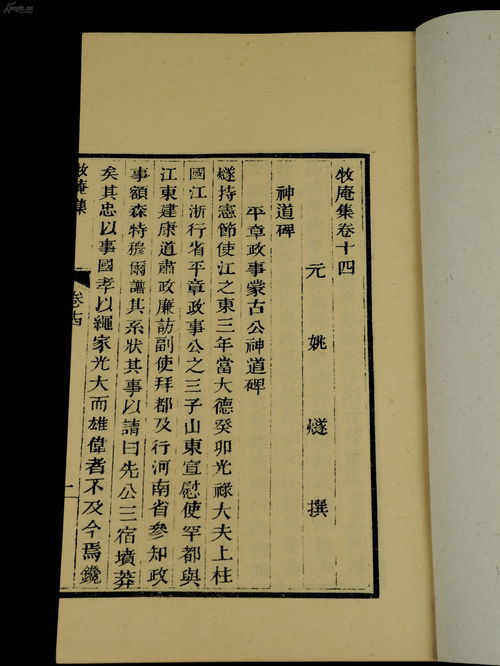 牧庵集卷十四
元 姚 燧 撰
神道碑
平章政事蒙古公神道碑
燧持憲節使江之東三年當大德癸卯光祿大夫上柱
國江浙行省平章政事公之三子山東宣慰使罕都與
江東建康道肅政廉訪副使拜都及行河南省參知政
事額森特穆爾譜其系狀其事以請曰先公三宿墳莽
矣其忠以事國孝以繩家光大而雄偉者不及今焉鑱
牧庵集
卷十四
一